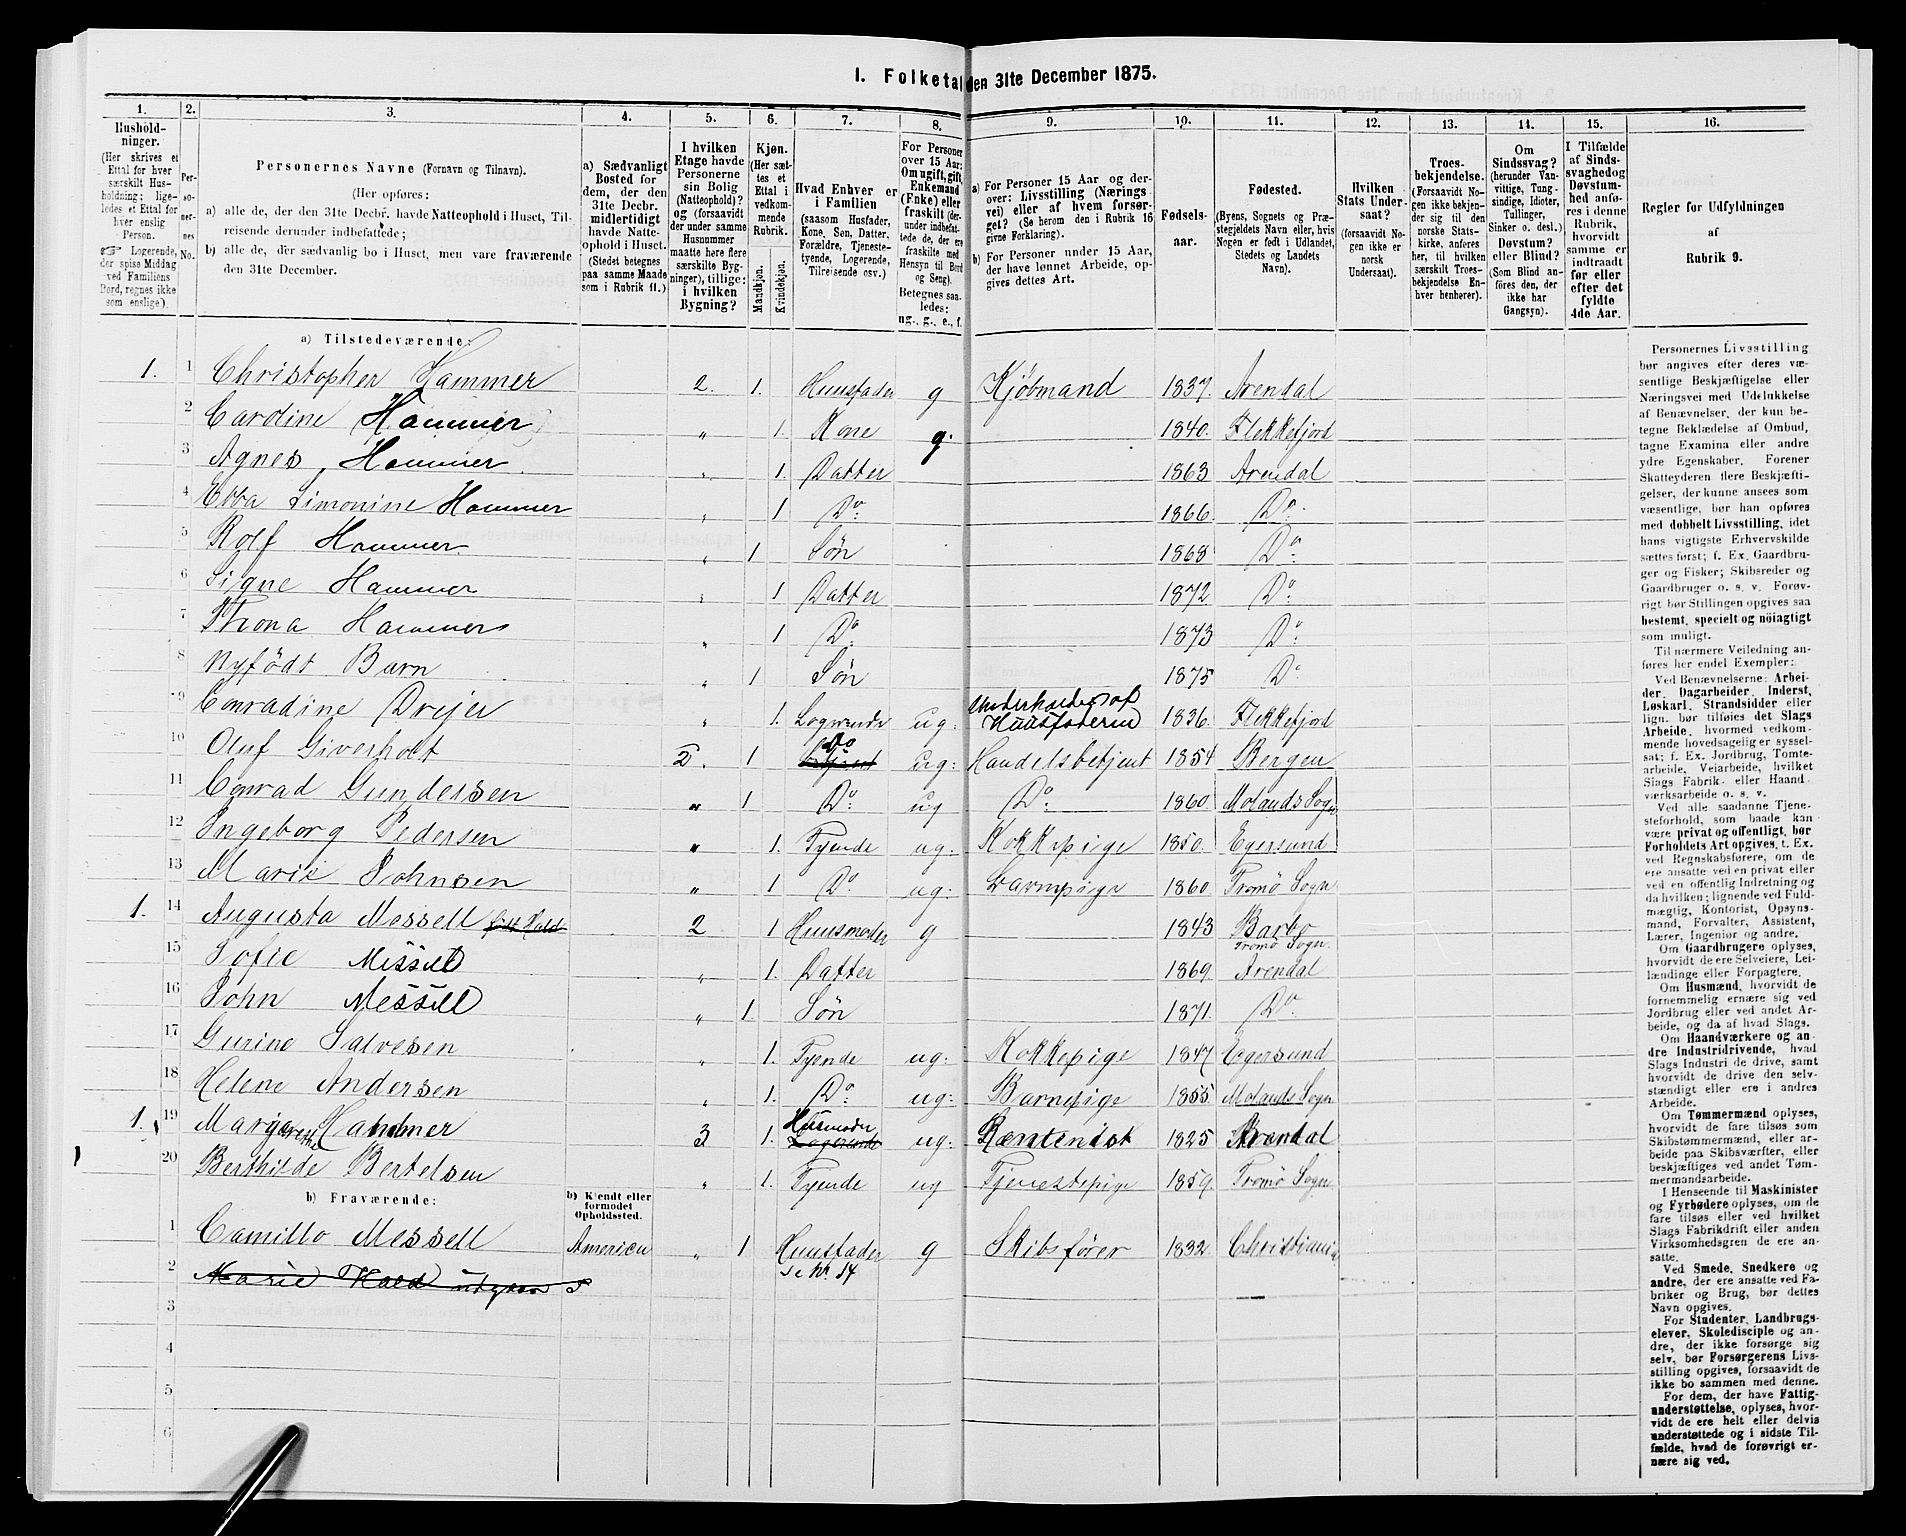 I. Folketal den 31te December 1875.
1. 2. 3. 4. 5. 6. 7. 8. 9. 10. 11. 12. 13. 14. 15. 16.
Hushold-
ninger.
(Her skrives et
Ettal for hver
særskilt Hus-
holdning; lige-
ledes et Ettal for
hver enslig
Person.
☞ Logerende,
der spise Middag
ved Familiens
Bord, regnes ikke
som enslige).
Per-
so-
ner-
nes
No.
Personernes Navne (Fornavn og Tilnavn).
(Her opføres:
a) alle de, der den 31te Decbr. havde Natteophold i Huset, Til-
reisende derunder indbefattede;
b) alle de, der sædvanlig bo i Huset, men vare fraværende
den 31te December.
a) Sædvanligt
Bosted for
dem, der den
31te Decbr.
midlertidigt
havde Natte-
ophold i Huset.
(Stedet betegnes
paa samme Maade
som i Rubrik 11.)
I hvilken
Etage havde
Personerne
sin Bolig
(Natteophold)?
og (forsaavidt
der under samme
Husnummer
maatte høre flere
særskilte Byg-
ninger), tillige:
i hvilken
Bygning?
Kjøn.
(Her sæt-
tes et
Ettal i
vedkom-
mende
Rubrik.
Mandkjøn.
Kvindekjøn.
Hvad Enhver er
i Familien
(saasom Husfader,
Kone, Søn, Datter,
Forældre, Tjeneste-
tyende, Logerende,
Tilreisende osv.)
For Personer
over 15 Aar:
Om ugift, gift,
Enkemand
(Enke) eller
fraskilt (der-
under indbefat-
tede de, der ere
fraskilte med
Hensyn til Bord
og Seng).
Betegnes saa-
ledes:
ug., g., e., f.
a) For Personer 15 Aar og der-
over: Livsstilling (Nærings
vei) eller af hvem forsør-
get? (Se herom den i Rubrik 16
givne Forklaring).
b) For Personer under 15 Aar,
der have lønnet Arbeide, op-
gives dettes Art.
Fødsels-
aar.
Fødested.
(Byens, Sognets og Præ-
stegjeldets Navn eller, hvis
Nogen er født i Udlandet,
Stedets og Landets
Navn).
Hvilken
Stats Under-
saat?
(forsaavidt No-
gen ikke er
norsk
Undersaat).
Troes-
bekjendelse.
(Forsaavidt No-
gen ikke bekjen-
der sig til den
norske Stats-
kirke, anføres
her, til hvilken
særskilt Troes-
bekjendelse En-
hver henhører).
Om
Sindssvag?
(herunder Van-
vittige, Tung-
sindige, Idioter,
Tullinger,
Sinker o. desl.)
Døvstum?
eller Blind?
(Som Blind an-
føres den, der
ikke har
Gangsyn).
I Tilfælde
af Sinds-
svaghed og
Døvstum-
hed anfø-
res i denne
Rubrik,
hvorvidt
samme er
indtraadt
før eller
efter det
fyldte
4de Aar.
Regler før Udfyldningen
af
Rubrik 9.
a) Tilstedeværende:
1. 1 Christopher Hammer 2. 1. Huusfader g Kjøbmand 1837. Arendal
2 Caroline Hammer „ 1. Kone g. 1840. Flekkefjord
3 Agnes Hammer „ 1. Datter 1863 Arendal
4 Ebba Simonine Hammer „ 1 Do: 1866. Do.
5 Rolf Hammer „ 1 Søn 1868 Do:
6 Signe Hammer „ 1 Datter 1872 Do:
7 Thona Hammer „ 1 Do: 1873 Do:
8 Nyfødt Barn „ 1 Søn 1875 Do
9 Conradine Drejer „ 1. Logerende ug: Underholdes af Huusfaderen 1836. Flekkefjord
10 Oluf Giverholt 2. 1 Do ug: Handelsbetjent 1854 Bergen
11 Conrad Gundersen „ 1 Do: ug Do: 1860 Molands Sogn
12 Ingeborg Pedersen „ 1. Tyende ug: Kokkepige 1850. Egersund
13 Marie Johnsen „ 1 Do: ug: Barnepige 1860 Tromø Sogn
1. 14 Augusta Messell født Hald 2 1 Huusmoder g 1843 Barbo Tromø Sogn
15 Sofie Messell „ 1. Datter 1869 Arendal
16 John Messell „ 1. Søn 1871. Do
17 Gurine Salvesen „ 1. Tyende ug: Kokkepige 1847 Egersund
18 Helene Andersen „ 1. Do: ug: Barnepige 1855 Molands Sogn
1. 19 Margrethe Hammer 3 1. Husmoder Logerende ug: Rentenist 1825 Arendal
20 Berthilde Bertelsen „ 1. Tyende ug Tjenestepige 1859. Tromø Sogn
b) Fraværende:
b) Kjendt eller
formodet
Opholdssted.
1 Camillo Messell America „ 1 Huusfader g Skibsfører 1832 Christiania
se Nr. 14
2 Marie Hald
3
4
5
6
Personernes Livsstilling
bør angives efter deres væ-
sentlige Beskjæftigelse eller
Næringsvei med Udelukkelse
af Benævnelser, der kun be-
tegne Beklædelse af Ombud,
tagne Examina eller andre
ydre Egenskaber. Forener
Skatteyderen flere Beskjæfti-
gelser, der kunne ansees som
væsentlige, bør han opføres
med dobbelt Livsstilling, idet
hans vigtigste Erhvervskilde
sættes først; f. Ex. Gaardbru-
ger og Fisker; Skibsreder og
Gaardbruger o. s. v. Forøv-
rigt bør Stillingen opgives saa
bestemt, specielt og nöiagtigt
som muligt.
Til nærmere Veiledning an-
føres her endel Exempler:
Ved Benævnelserne: Arbei-
der, Dagarbeider, Inderst,
Løskarl, Strandsidder eller
lign. bør tilføies det Slags
Arbeide, hvormed vedkom-
mende hovedsagelig er syssel-
sat; f. Ex. Jordbrug, Tomte-
arbeide, Veiarbeide, hvilket
Slags Fabrik- eller Haand-
værksarbeide o. s. v.
Ved alle saadanne Tjene-
steforhold, som baade kan
være privat og offentligt, bør
Forholdets Art opgives, t. Ex.
ved Regnskabsførere, om de
ere ansatte ved en privat eller
ved en offentlig Indretning og
da hvilken; lignende ved Fuld-
mægtig, Kontorist, Opsyns-
mand, Forvalter, Assistent,
Lærer, Ingeniør og andre.
Om Gaardbrugere oplyses,
hvorvidt de ere Selveiere, Lei-
lændinge eller Forpagtere.
Om Husmænd, hvorvidt de
fornemmelig ernære sig ved
Jordbrug eller ved andet Ar-
beide, og da af hvad Slags.
Om Haandværkere og an-
dre Industridrivende, hvad
Slags Industri de drive, samt
hvorvidt de drive den selv-
stændigt eller ere i andres
Arbeide.
Om Tømmermænd oplyses,
hvorvidt de fare tilsøs som
Skibstømmermænd, eller ar-
beide paa Skibsværfter, eller
beskjæftiges ved andet Tøm-
mermandsarbeide.
I Henseende til Maskinister
og Fyrbødere oplyses, om de
fare tilsøs eller ved hvilket
Slags Fabrikdrift eller anden
Virksomhedsgren de ere an-
satte.
Ved Smede, Snedkere og
andre, der ere ansatte ved Fa-
briker og Brug, bør dettes
Navn opgives.
For Studenter, Landbrugs-
elever, Skoledisciple og an-
dre, der ikke forsørge sig
selv, bør Forsørgerens Livs-
stilling opgives, forsaavidt de
ikke bo sammen med denne.
For dem, der have Fattig-
understøttelse, oplyses, hvor-
vidt de ere helt eller delvis
understøttede og i sidste Til-
fælde, hvad de forøvrigt er-
nære sig ved.